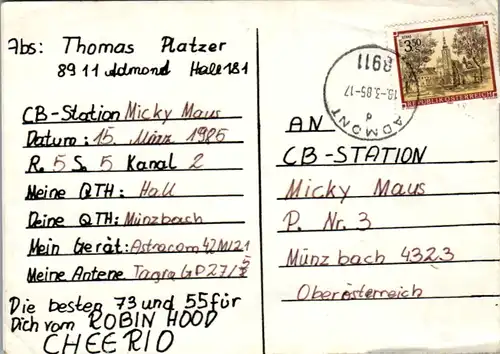 Abs: Thomas Platzer
8911 Admond Hall 181
CB-Station Micky Maus
Datum: 15. März 1985
R. 5 S. 5 Kanal 2
Meine QTH: Hall
Deine QTH: Münzbach
Mein Gerät: Astracom 42M121
Meine Antene Tagra GP27/
Die besten 73 und 55 für
Dich vom ROBIN HOOD
CHEERIO
3.50
REPUBLIK ÖSTERREICH
8911
18.-3.85-17
d
ADMONT
AN
CB-STATION
Micky Maus
P. Nr. 3
Münzbach 4323
Oberösterreich